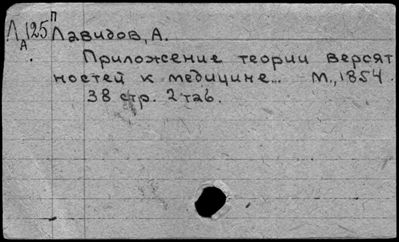 Л 125 П Давидов, А.
А
Приложение теории вероят
ностей к медицине... М., 1854.
38 стр. 2 таб.